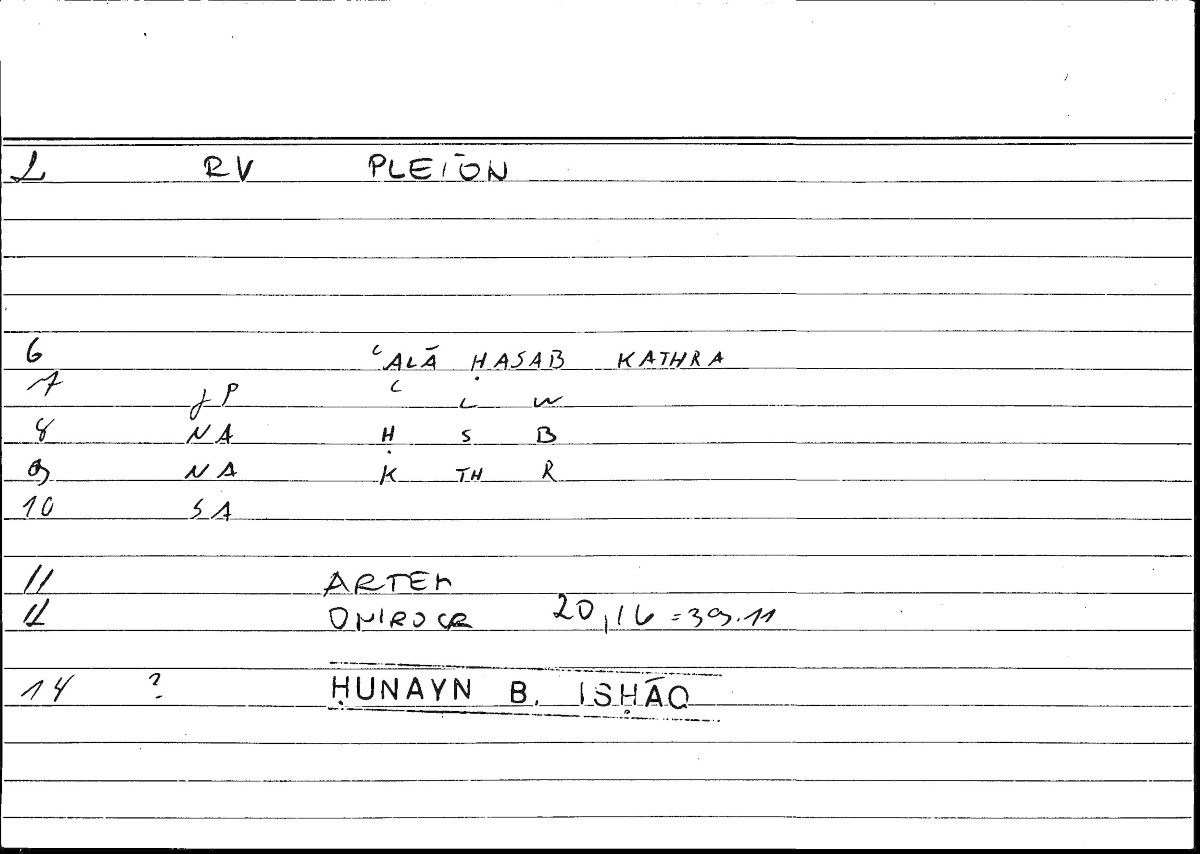 2 RV PLEIŌN
6 ʿALĀ ḤASAB KATHRA
7 JP ʿ L W
8 NA Ḥ S B
9 NA K TH R
10 SA
11 ARTEM
12 ONIROCR 20,16 = 39.11
14 ? ḤUNAYN B. ISḤĀQ